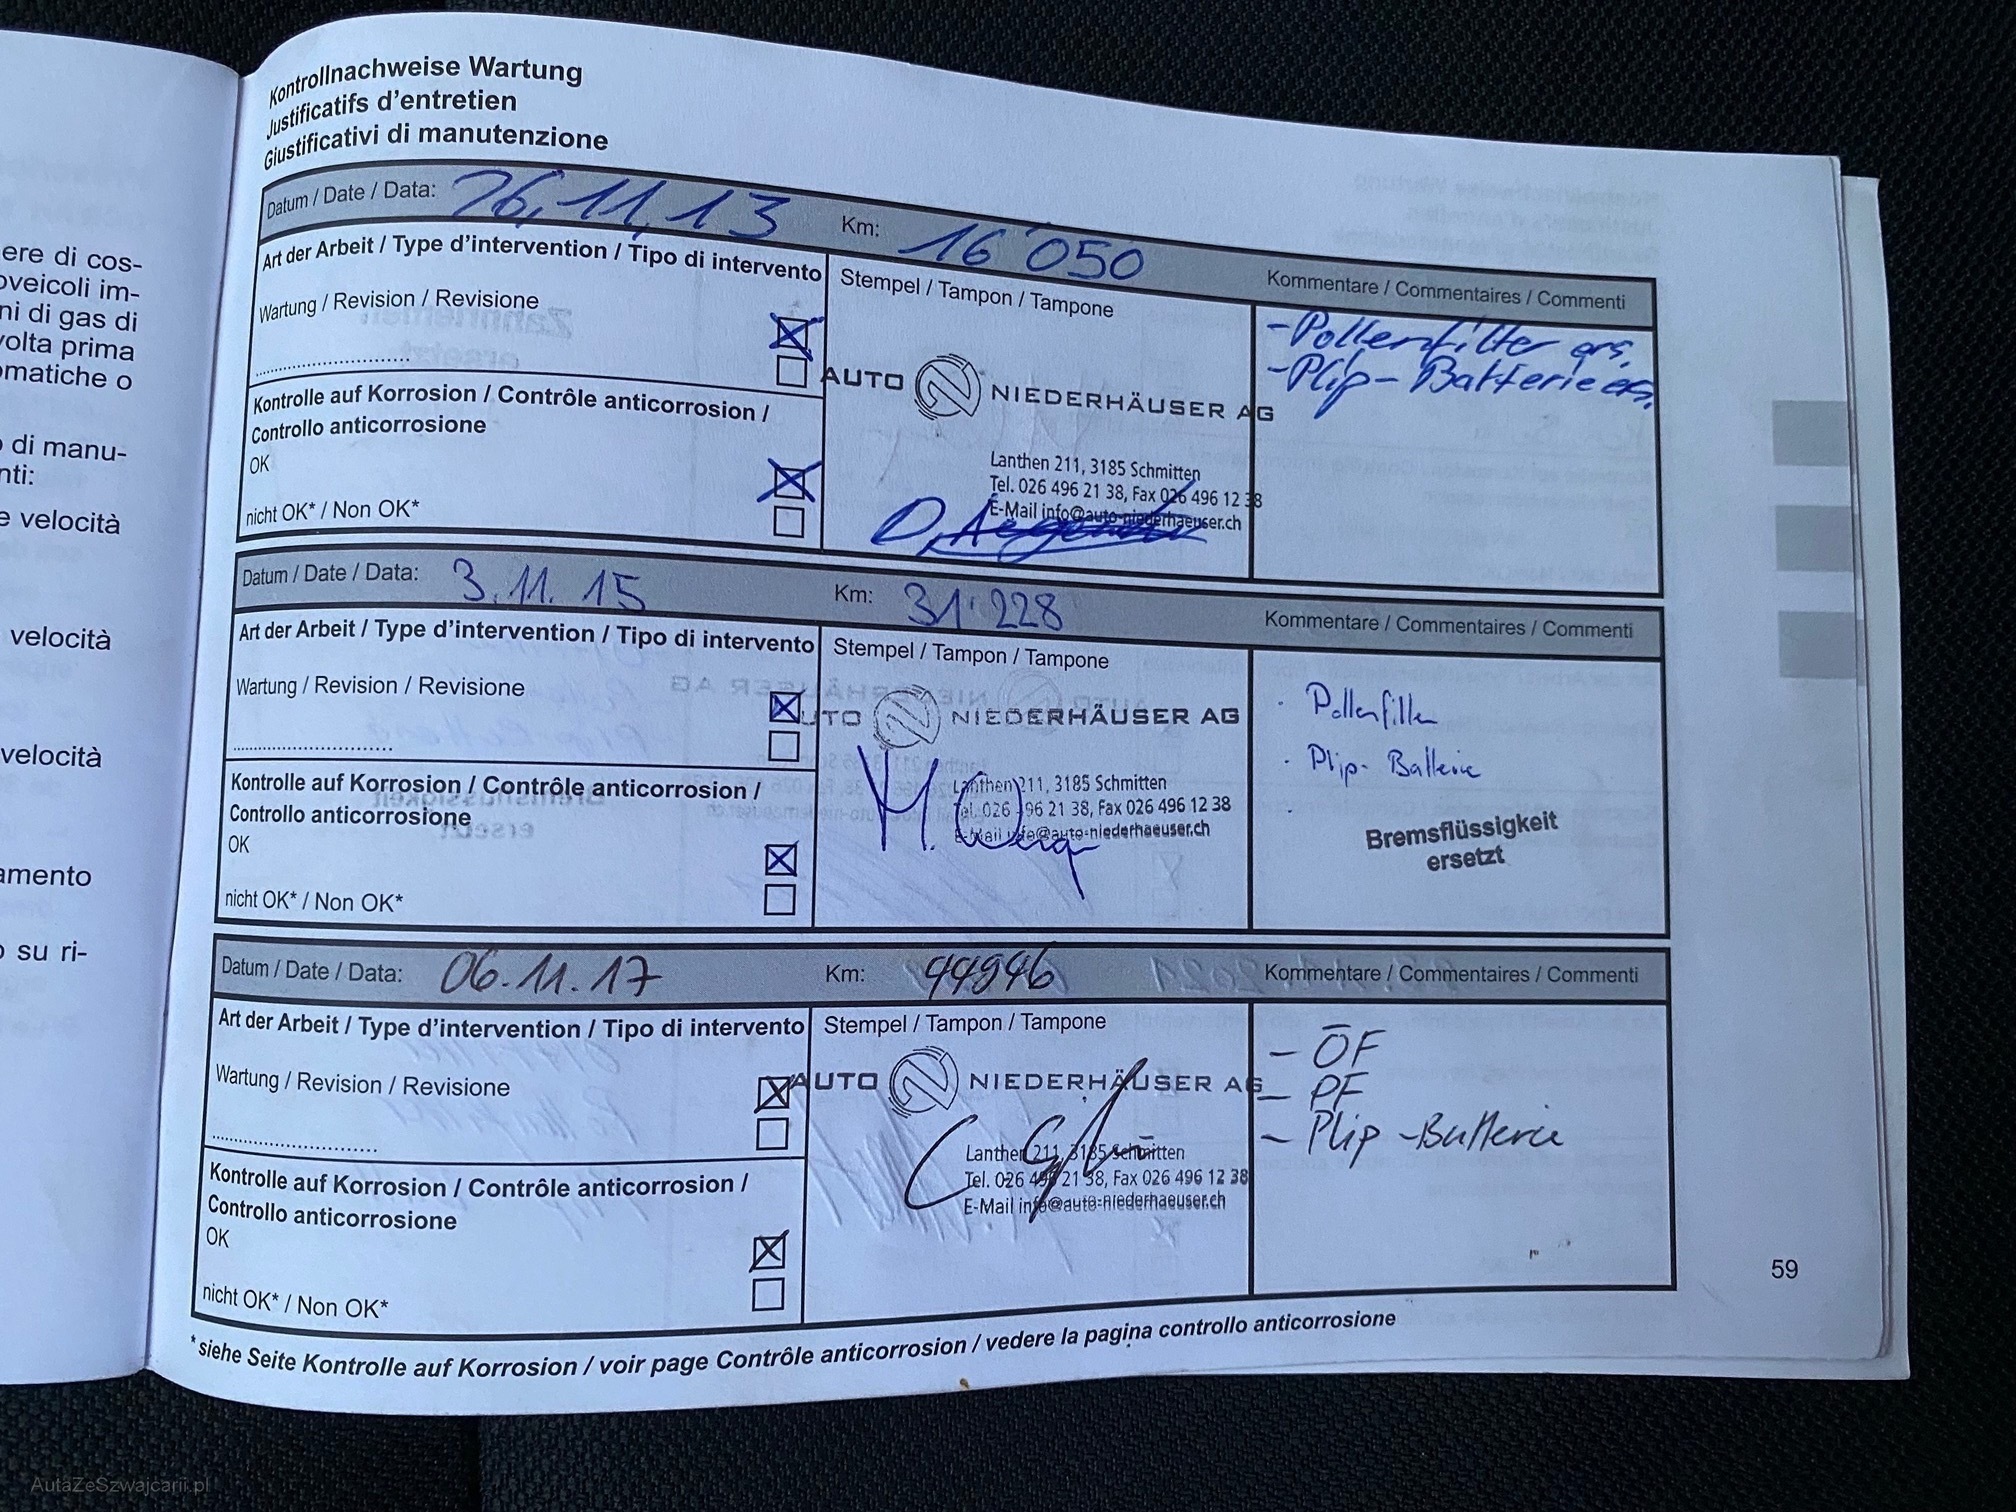 ere di cos-
oveicoli im-
ni di gas di
volta prima
omatiche o
di manu-
nti:
e velocità
velocità
velocità
amento
su ri-
Kontrollnachweise Wartung
Justificatifs d'entretien
Giustificativi di manutenzione
Datum / Date / Data: 26.11.13 Km: 16'050
Kommentare / Commentaires / Commenti
Art der Arbeit / Type d'intervention / Tipo di intervento
Wartung / Revision / Revisione
Kontrolle auf Korrosion / Contrôle anticorrosion /
Controllo anticorrosione
OK
nicht OK* / Non OK*
Stempel / Tampon / Tampone
AUTO NIEDERHÄUSER AG
Lanthen 211, 3185 Schmitten
Tel. 026 496 21 38, Fax 026 496 12 38
E-Mail info@auto-niederhaeuser.ch
- Pollenfilter ers.
- Plip-Batterie ers.
Datum / Date / Data: 3.11.15 Km: 31'228
Kommentare / Commentaires / Commenti
Art der Arbeit / Type d'intervention / Tipo di intervento
Wartung / Revision / Revisione
Kontrolle auf Korrosion / Contrôle anticorrosion /
Controllo anticorrosione
OK
nicht OK* / Non OK*
Stempel / Tampon / Tampone
AUTO NIEDERHÄUSER AG
Lanthen 211, 3185 Schmitten
Tel. 026 496 21 38, Fax 026 496 12 38
E-Mail info@auto-niederhaeuser.ch
· Pollenfilter
· Plip-Batterie
·
Bremsflüssigkeit
ersetzt
Datum / Date / Data: 06.11.17 Km: 44946
Kommentare / Commentaires / Commenti
Art der Arbeit / Type d'intervention / Tipo di intervento
Wartung / Revision / Revisione
Kontrolle auf Korrosion / Contrôle anticorrosion /
Controllo anticorrosione
OK
nicht OK* / Non OK*
Stempel / Tampon / Tampone
AUTO NIEDERHÄUSER AG
Lanthen 211, 3185 Schmitten
Tel. 026 496 21 38, Fax 026 496 12 38
E-Mail info@auto-niederhaeuser.ch
- ÖF
- PF
- Plip-Batterie
59
* siehe Seite Kontrolle auf Korrosion / voir page Contrôle anticorrosion / vedere la pagina controllo anticorrosione
AutaZeSzwajcarii.pl